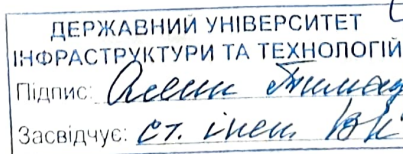 ДЕРЖАВНИЙ УНІВЕРСИТЕТ
ІНФРАСТРУКТУРИ ТА ТЕХНОЛОГІЙ
Підпис:
Засвідчує: ст. інсп. ВК